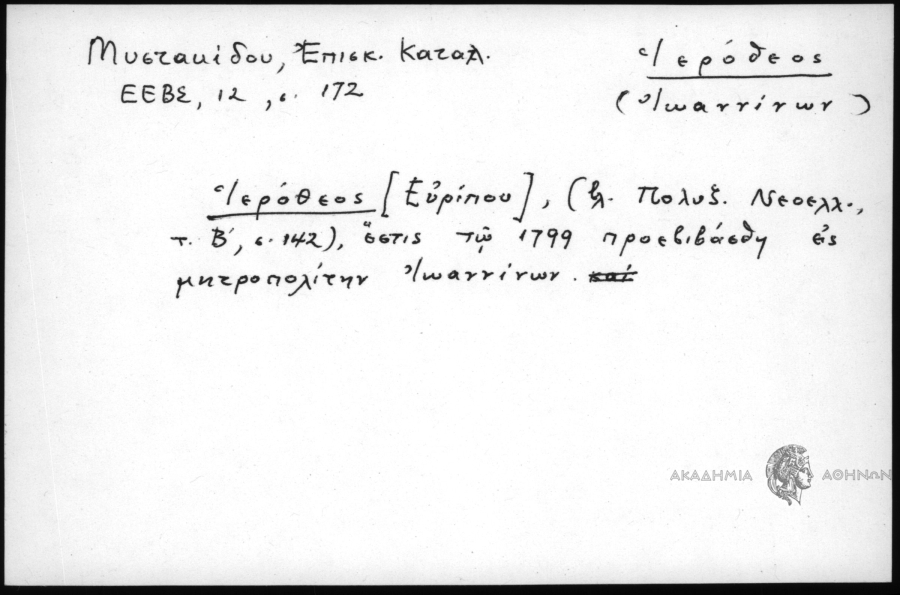 Μυστακίδου, Ἐπισκ. Καταλ.
ΕΕΒΣ, 12, σ. 172
Ἱερόθεος
(Ἰωαννίνων)
Ἱερόθεος [Εὐρίπου], (βλ. Πολυξ. Νεοελλ.,
τ. Β', σ. 142), ὅστις τῷ 1799 προεβιβάσθη εἰς
μητροπολίτην Ἰωαννίνων. καί
ΑΚΑΔΗΜΙΑ ΑΘΗΝΩΝ